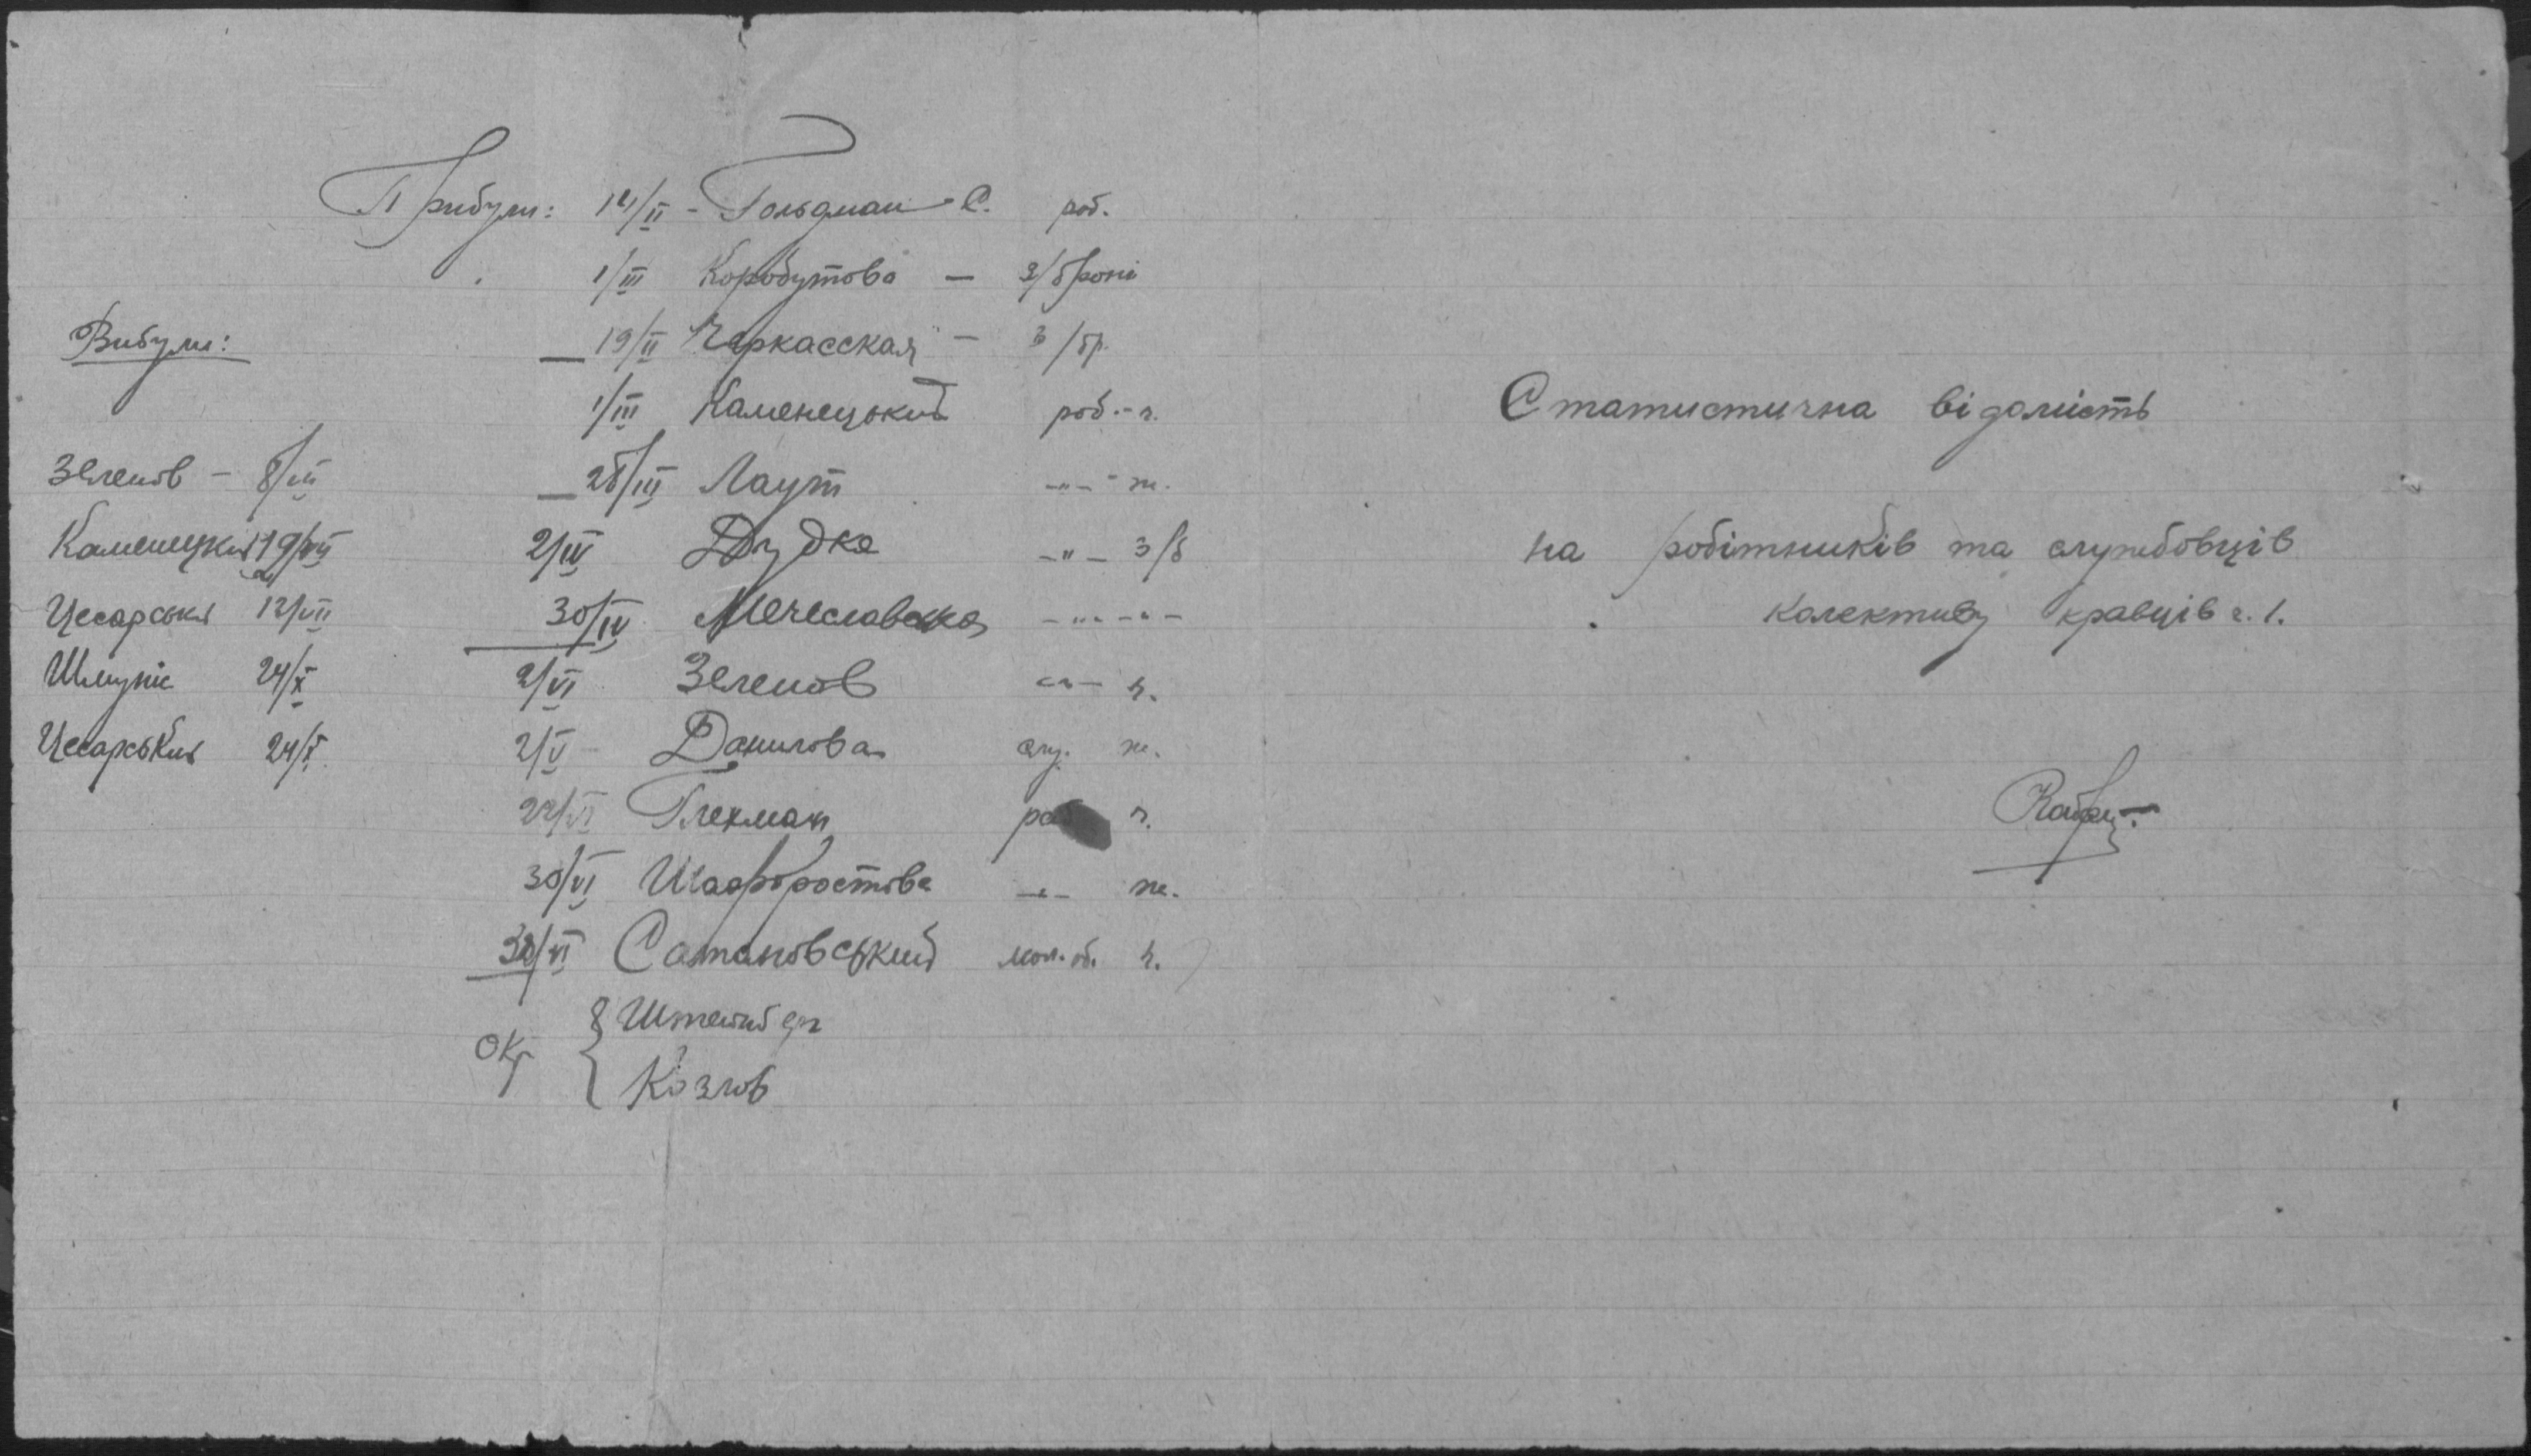 Прибули: 14/II - Гольдман С. роб.
1/III Коробутова — з/броні
19/II Черкасская — з/бр.
1/III Каменецький роб. - ч.
28/III Лаут -"- - ж.
2/IV Дудка -"- з/б
30/IV Мечеславська -"- -"-
2/VI Зеленов -"- ч.
2/V Данилова слу. ж.
22/VI Глекман роб ч.
30/VI Шафоростова -"- ж.
30/VI Сатановський ч.
Окр { Штейнберг
Козлов
Вибули:
Зеленов - 8/III
Каменецкий 19/VII
Цесарськи 12/VII
24/X
Цесарський 24/X
Статистична відомість
на робітників та службовців
колективу кравців ч. 1.